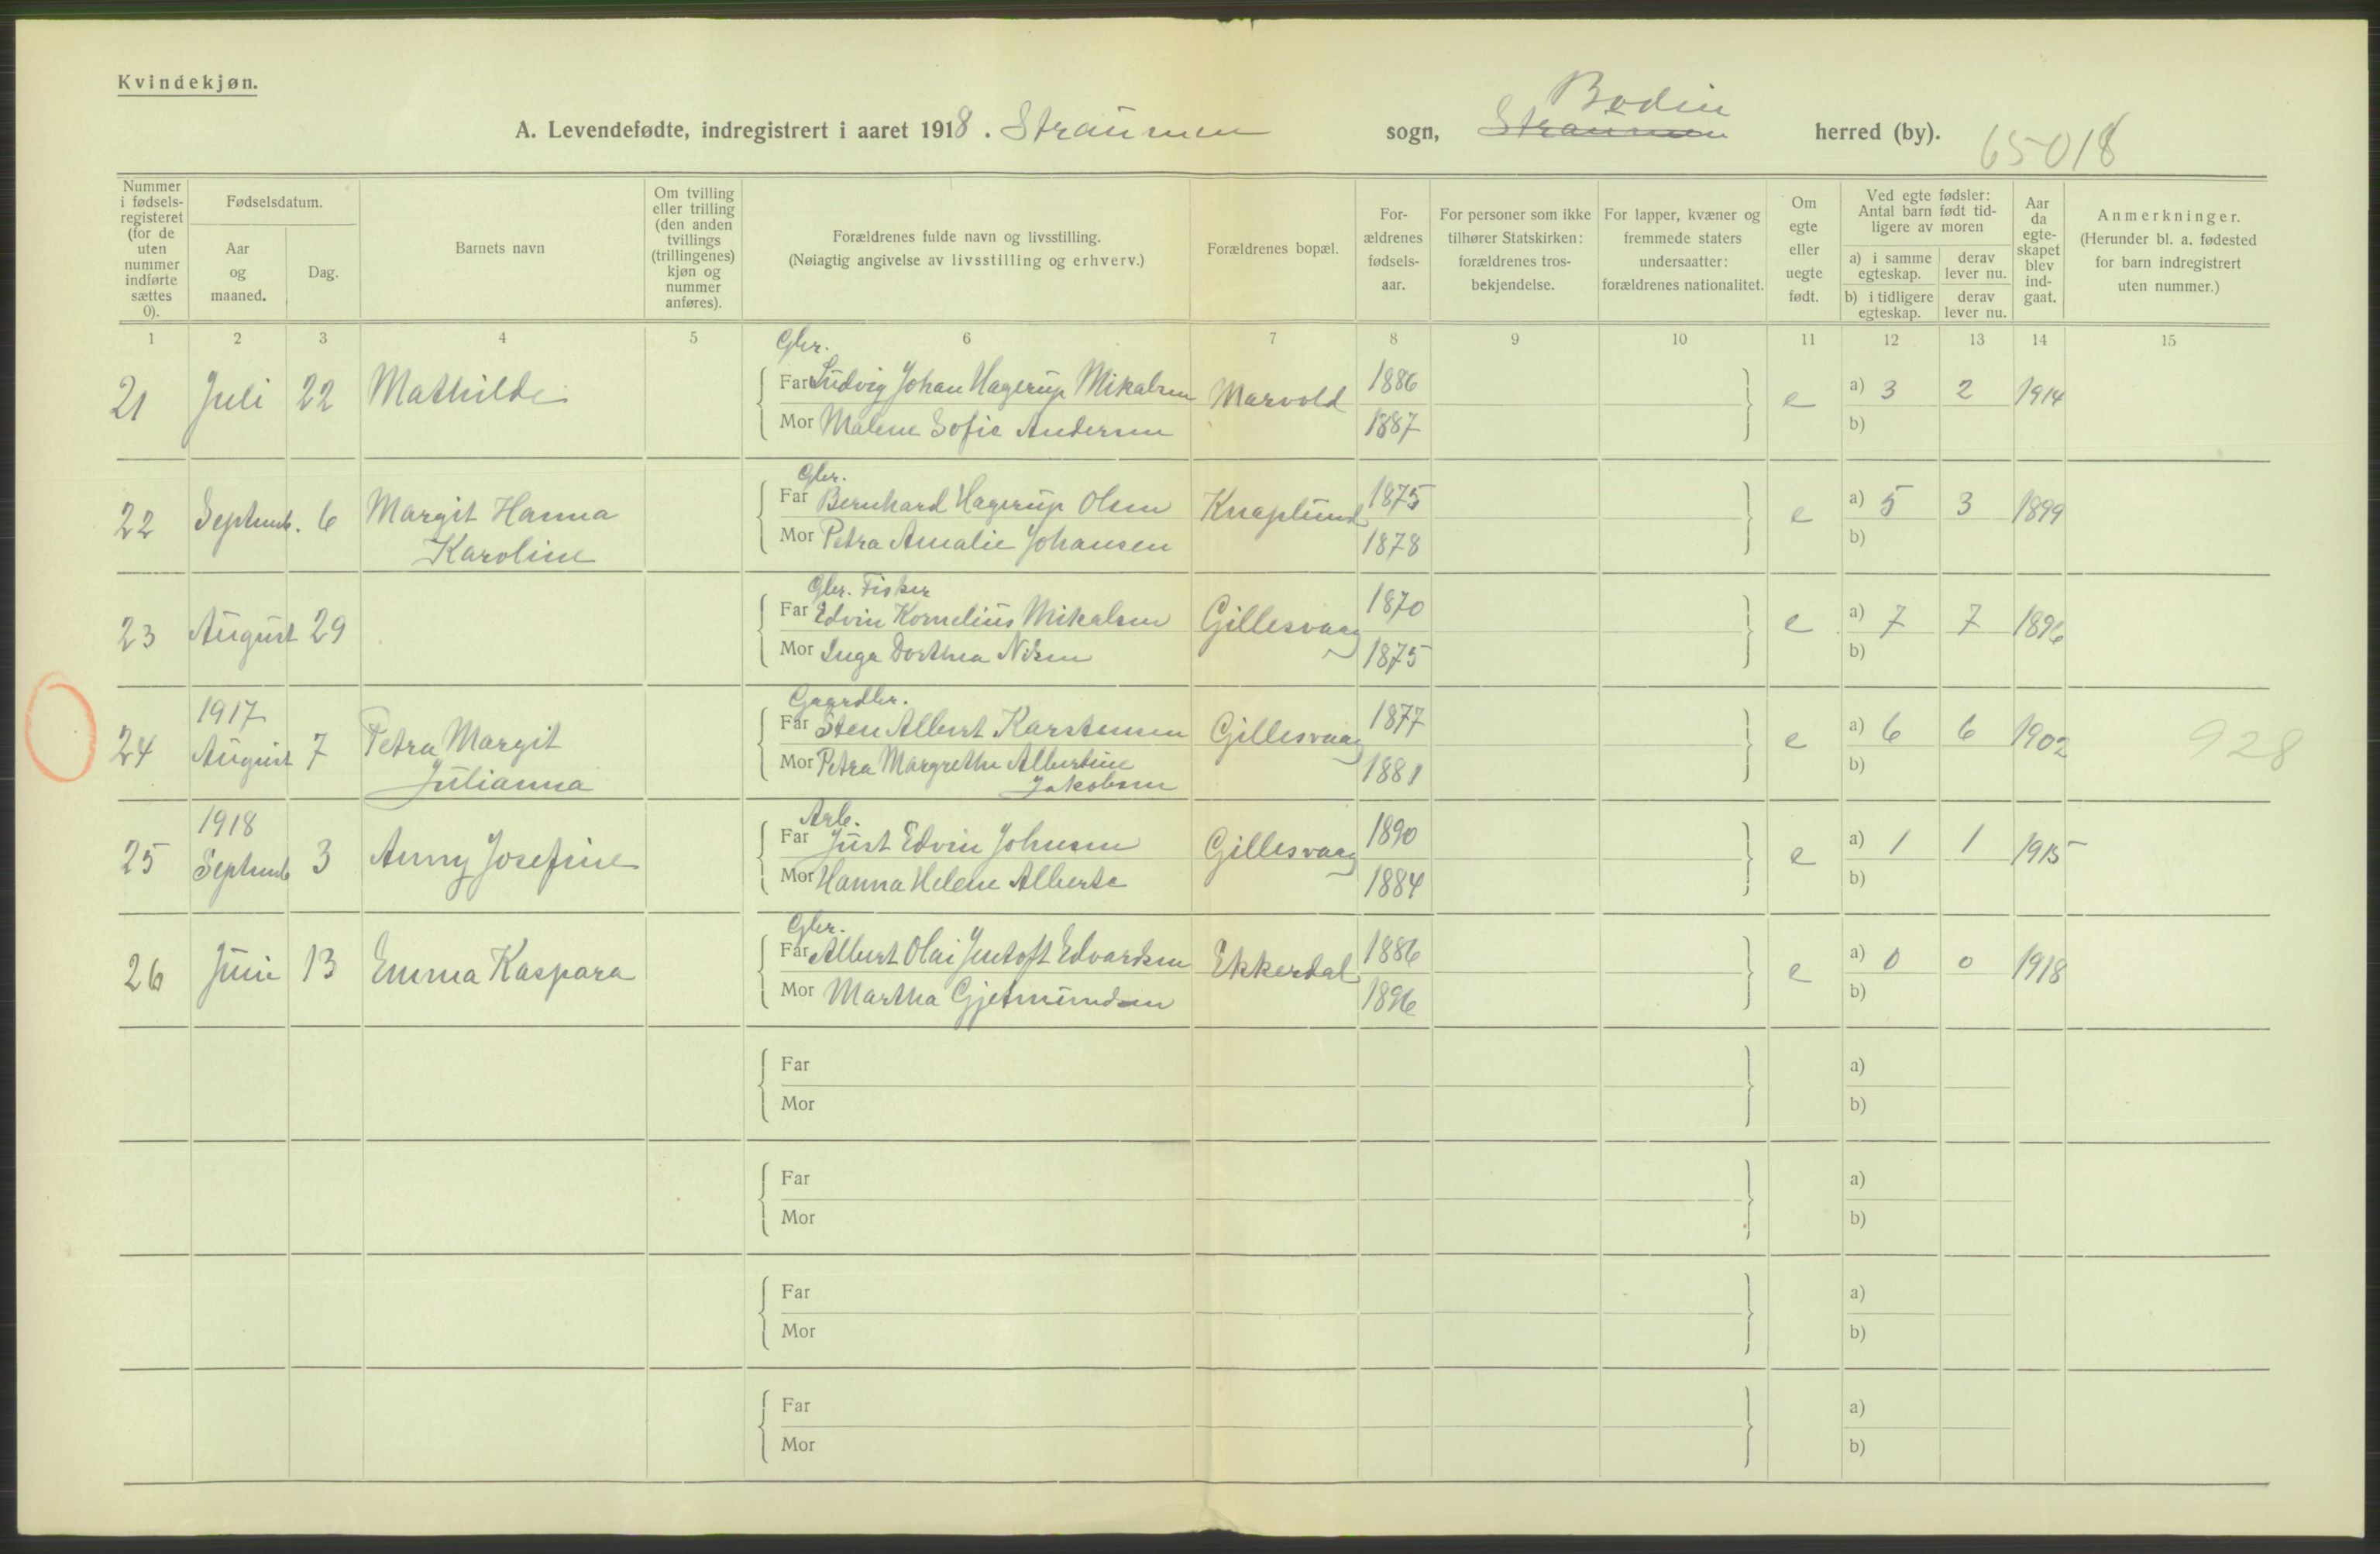 Kvindekjøn.
A. Levendefødte, indregistrert i aaret 1918. Straumen sogn, Straumen Bodin herred (by). 65018
Nummer i fødselsregisteret (for de uten nummer indførte sættes 0).
Fødselsdatum.
Aar og maaned.
Dag.
Barnets navn
Om tvilling eller trilling (den anden tvillings (trillingenes) kjøn og nummer anføres).
Forældrenes fulde navn og livsstilling.
(Nøiagtig angivelse av livsstilling og erhverv.)
Forældrenes bopæl.
Forældrenes fødselsaar.
For personer som ikke tilhører Statskirken: forældrenes trosbekjendelse.
For lapper, kvæner og fremmede staters undersaatter: forældrenes nationalitet.
Om egte eller uegte født.
Ved egte fødsler: Antal barn født tidligere av moren
a) i samme egteskap.
derav lever nu.
b) i tidligere egteskap.
derav lever nu.
Aar da egteskapet blev indgaat.
Anmerkninger.
(Herunder bl. a. fødested for barn indregistrert uten nummer.)
1 2 3 4 5 6 7 8 9 10 11 12 13 14 15
Gbr.
21 Juli 22 Mathilde Far Ludvig Johan Hagerup Mikalsen Marvold 1886 e a) 3 2 1914
Mor Malene Sofie Andersen 1887 b)
Gbr.
22 Septemb. 6 Margit Hanna Far Bernhard Hagerup Olsen Knaplund 1875 e a) 5 3 1899
Karoline Mor Petra Amalie Johansen 1878 b)
Gbr. Fisker
23 August 29 Far Edvin Kornelius Mikalsen Gillesvaag 1870 e a) 7 7 1896
Mor Inga Dorthea Nilsen 1875 b)
1917 Gaardbr.
24 August 7 Petra Margit Far Sten Albert Karstensen Gillesvaag 1877 e a) 6 6 1902 928
Julianna Mor Petra Margrethe Albertine 1881 b)
Jakobsen
1918 Arb.
25 Septemb 3 Anny Josefine Far Just Edvin Johnsen Gillesvaag 1890 e a) 1 1 1915
Mor Hanna Helene Alberte 1884 b)
Gbr.
26 Juni 13 Emma Kaspara Far Albert Olai Jentoft Edvardsen Ekkerdal 1886 e a) 0 0 1918
Mor Martha Gjetmundsen 1896 b)
Far a)
Mor b)
Far a)
Mor b)
Far a)
Mor b)
Far a)
Mor b)